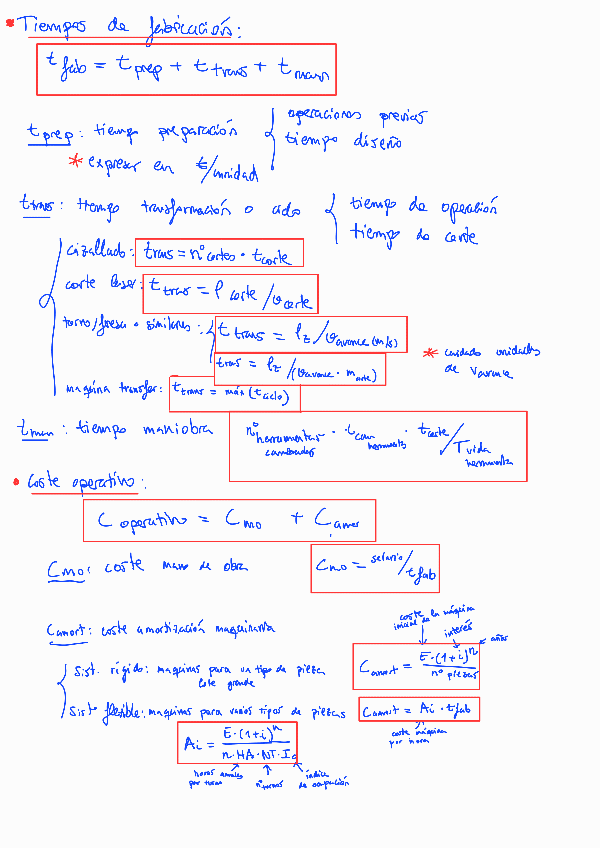 • Tiempos de fabricación:
t fab = t prep + t trans + t man
t prep: tiempo preparación { operaciones previas
tiempo diseño
* expresar en t/unidad
t trans: tiempo transformación o ciclo { tiempo de operación
tiempo de corte
cizallado: trans = nº cortes · t corte
corte laser: t trans = l corte / v corte
torno/fresa o similares: { t trans = lz / v avance (m/s)
trans = lz / (v avance · m corte)
* cuidado unidades
de v avance
maquina transfer: t trans = máx (t ciclo)
t man: tiempo maniobra
nº herramientas cambiadas · t cam herramienta · t corte / T vida herramienta
• Coste operativo:
C operativo = C mo + C amor
C mo: coste mano de obra
C mo = salario / t fab
C amort: coste amortización maquinaria
coste de la máquina
inicial
interés
años
C amort = E·(1+i)^n / nº piezas
Sist. rígido: maquinas para un tipo de pieza
lote grande
Sist flexible: maquinas para varios tipos de piezas
C amort = Ai · t fab
coste máquina
por hora
Ai = E·(1+i)^n / n·HA·NT·Io
horas anuales
por turno
nº turnos
índice
de ocupación